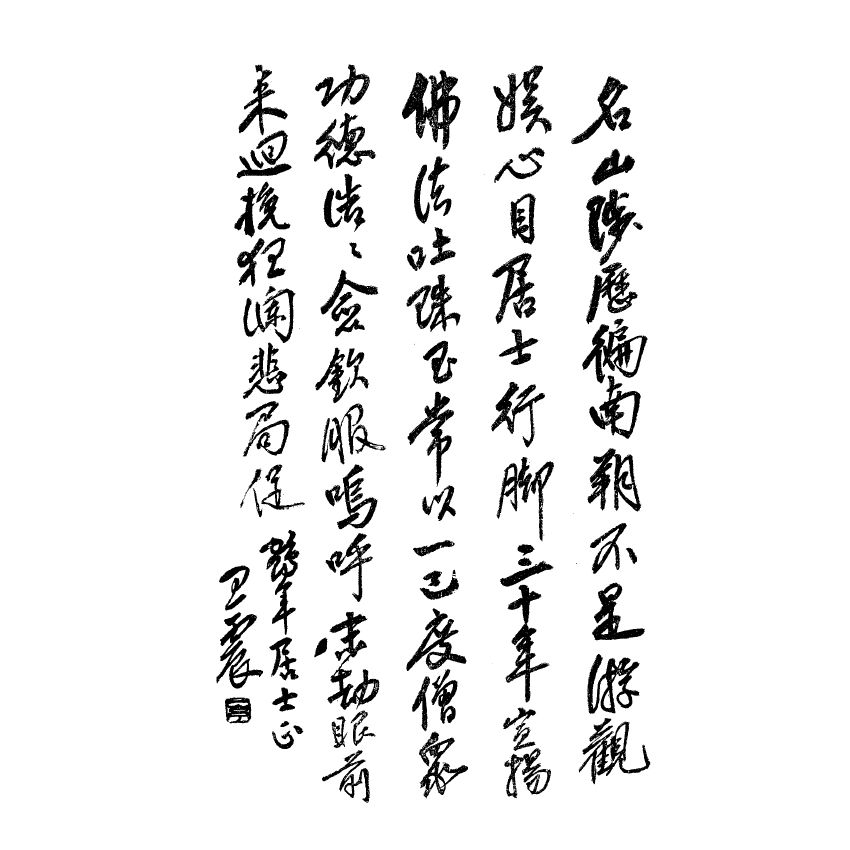 名山陟歷徧南朔不是游觀
娛心目居士行脚三十年宣揚
佛法吐珠玉常以一己度僧眾
功德浩〻僉欽服嗚呼劫眼前
来迴挽狂瀾悲局促
鶴年居士正
王震